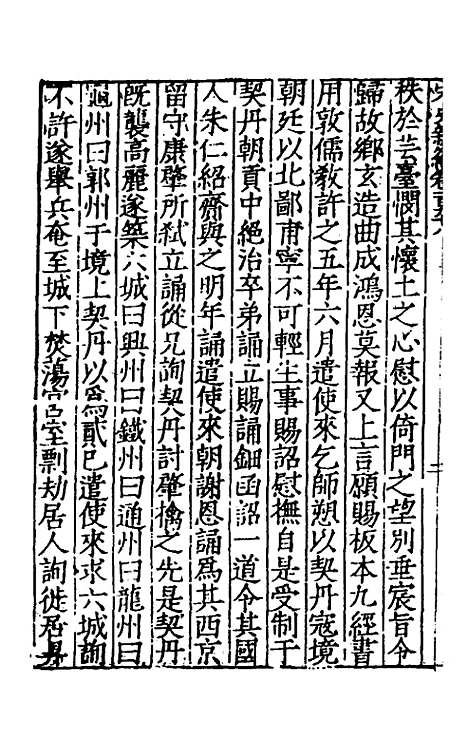 秩於芸臺憫其懷土之心慰以倚門之望別垂宸旨令
歸故鄉玄造曲成鴻恩莫報又上言願賜板本九經書
用敦儒教許之五年六月遣使來乞師愬以契丹寇境
朝廷以北鄙甫寧不可輕生事賜詔慰撫自是受制于
契丹朝貢中絕治卒弟誦立賜誦鈿函詔一道令其國
人朱仁紹齎與之明年誦遣使來朝謝恩誦爲其西京
留守康肇所弒立誦從兄詢契丹討肇擒之先是契丹
旣襲高麗遂築六城曰興州曰鐵州曰通州曰龍州曰
龜州曰郭州于境上契丹以爲貳己遣使來求六城詢
不許遂舉兵奄至城下焚蕩宮室剽劫居人詢徙居昇